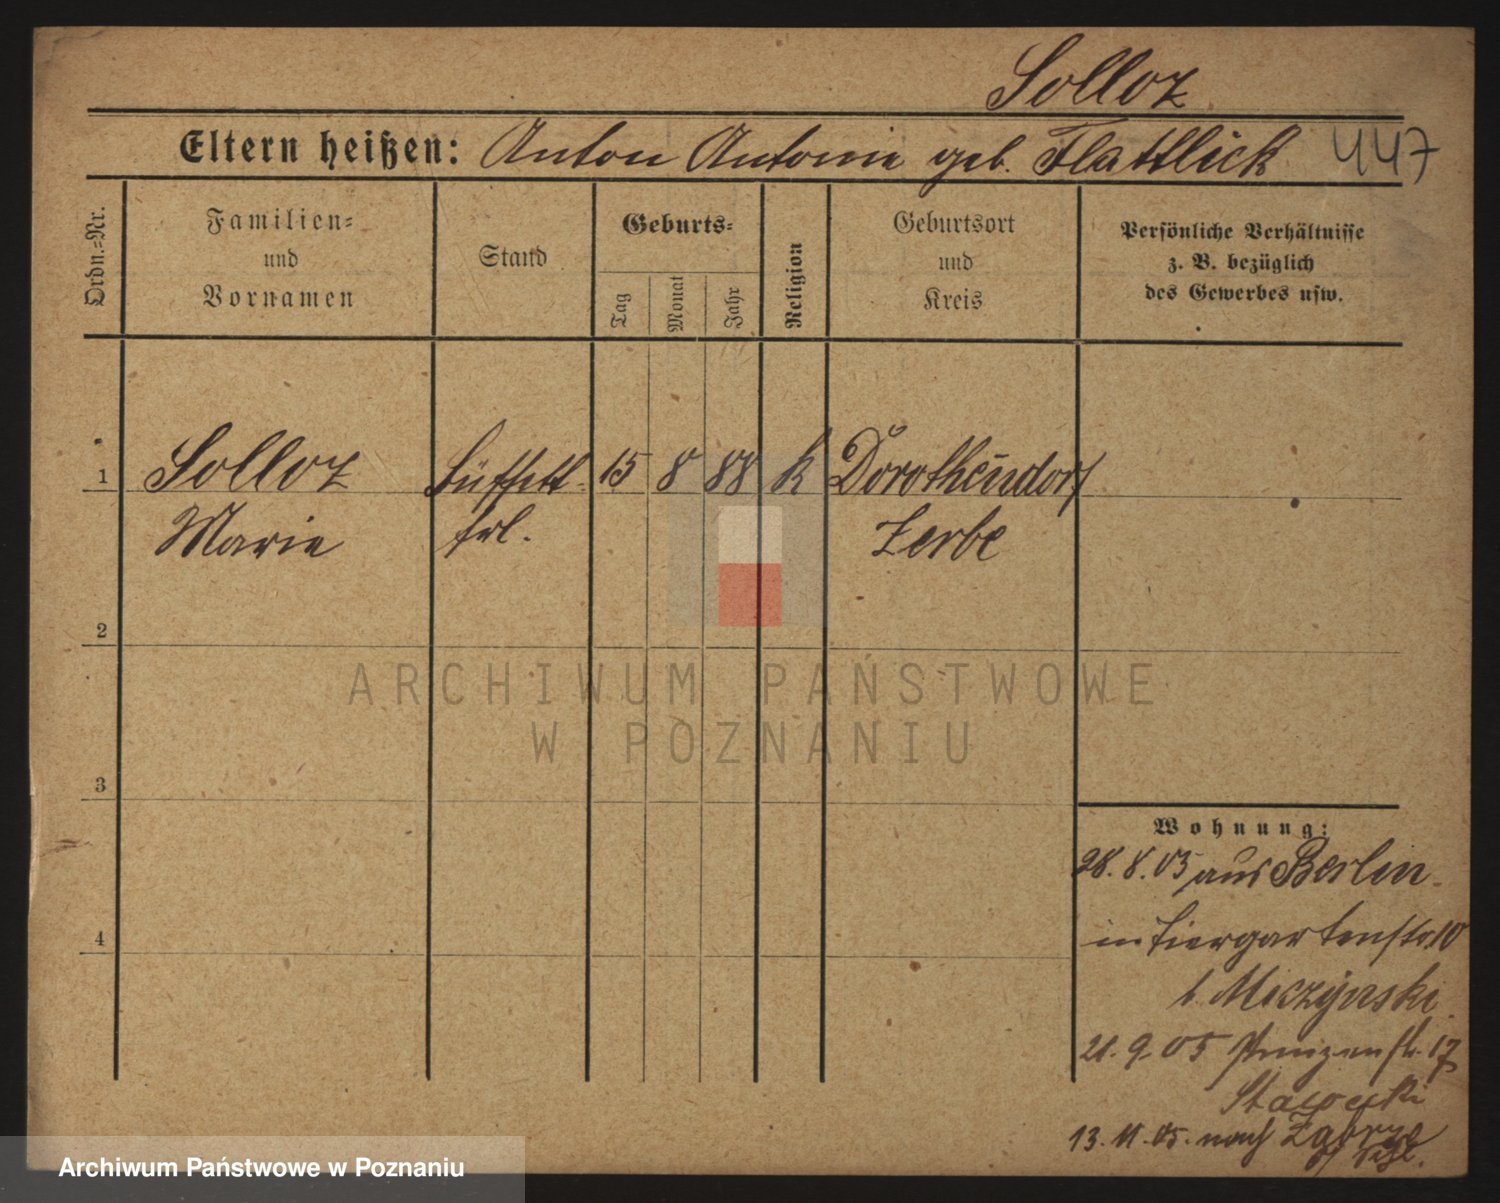 Solloz
Eltern heißen: Anton Antonie geb. Flattlick 447
Ordn.-Nr.
Familien-
und
Vornamen
Stand
Geburts-
Tag
Monat
Jahr
Religion
Geburtsort
und
Kreis
Persönliche Verhältnisse
z. B. bezüglich
des Gewerbes usw.
1 Solloz Büffett- 15 8 88 k Dorotheendorf
Marie frl. Zerbe
2
3
4
Wohnung:
28.8.05 aus Berlin.
in Tiergartenstr. 10
b. Miczynski
21.9.05 Prinzenstr. 17
13.11.05. nach Zabrze
ARCHIWUM PAŃSTWOWE
W POZNANIU
Archiwum Państwowe w Poznaniu